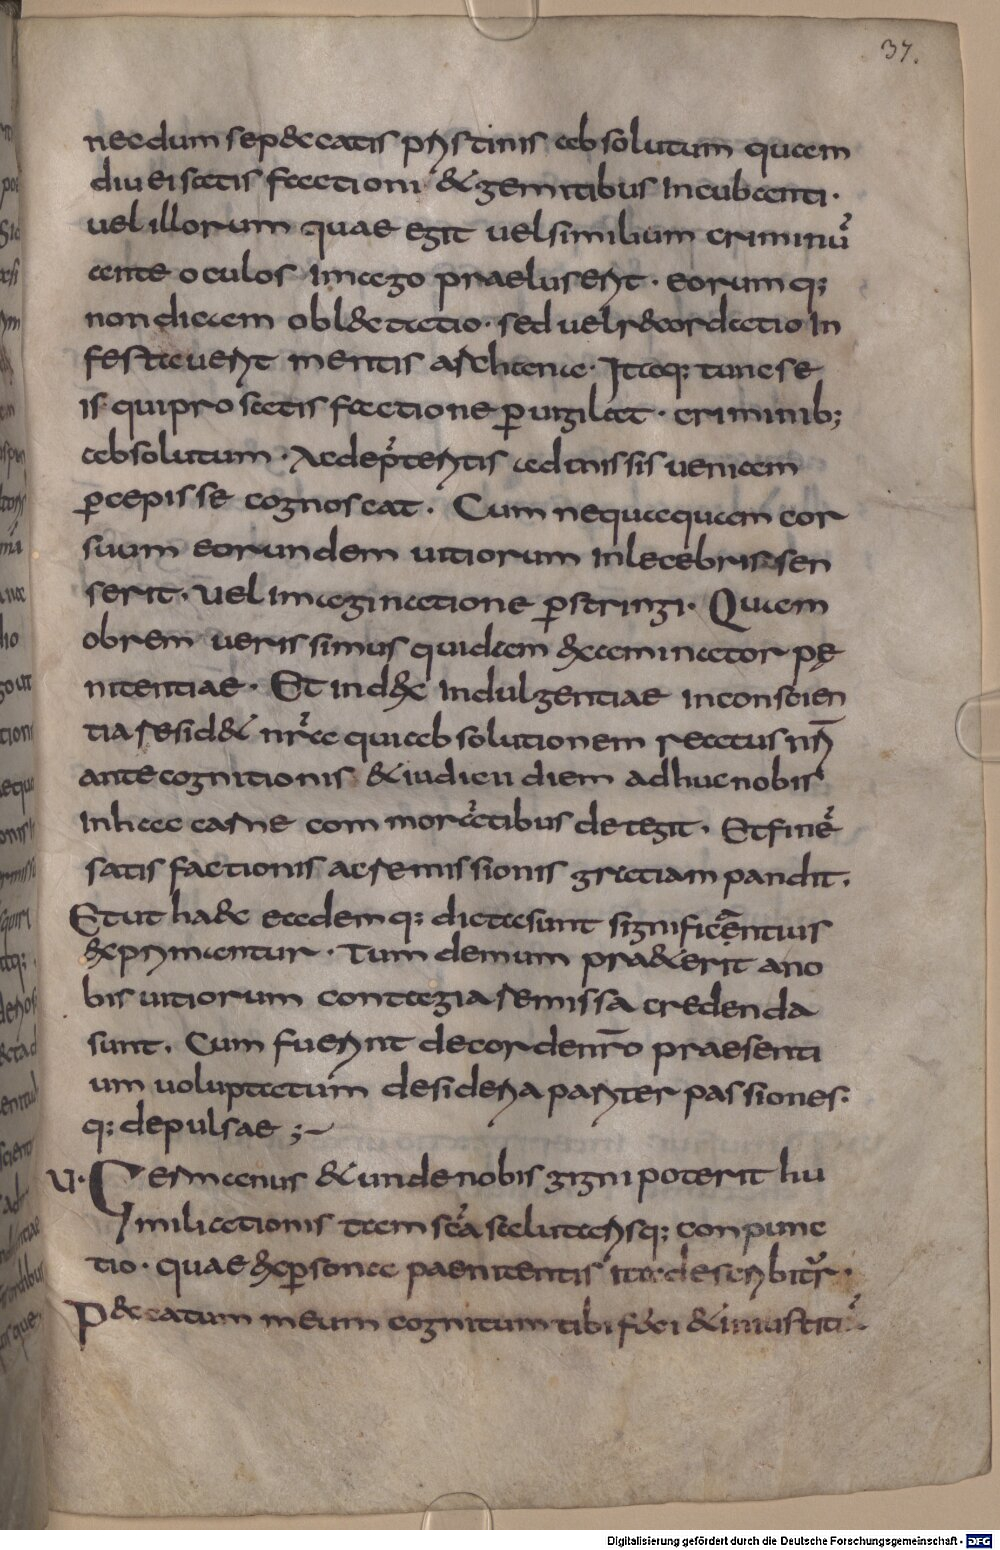 37.
necdum se p&catis pristinis absolutum quam
diu ei satisfactioni & gemitibus incubanti.
uel illorum quae egit uel similium criminū
ante oculos imago praeluserit. eorumq;
non dicam obl&ctatio. sed uel r&cordatio in
festauerit mentis archana. Itaq; tunc se
is qui pro satisfactione ꝑuigilat. criminib;
absolutum. Ac de p̄teritis admissis ueniam
ꝑcepisse cognoscat. Cum nequaquam cor
suum eorundem uitiorum inlecebris sen
serit. uel imaginatione ꝑstringi. Quam
obrem uerissimus quidam &xaminator pę
nitentiae. Et ind&x indulgentiae in conscien
tia resid& nr̄a qui absolutionem reatus nr̄i
ante cognitionis & iudicii diem adhuc nobis
in hac carne commorātibus detegit. Et finē
satisfactionis ac remissionis gratiam pandit.
Et ut ha&c eademq; dicta sunt significantius
&xprimantur. Tum demum pra&terita no
bis uitiorum contagia remissa credenda
sunt. Cum fuerint de corde nr̄o praesenti
um uoluptatum desideria pariter passiones.
q; depulsae ;~
VI. Germanus & unde nobis gigni poterit hu
miliationis tam sc̄a salutarisq; conpunc
tio. quae &x ꝑsona paenitentis ita describitur.
P&ccatum meum cognitum tibi feci & iniustitiā
Digitalisierung gefördert durch die Deutsche Forschungsgemeinschaft - DFG